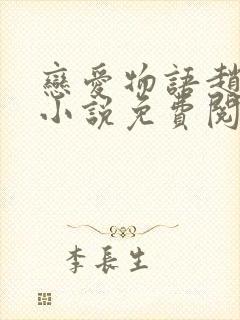 戀愛物語趙
小說免費閱
李長生